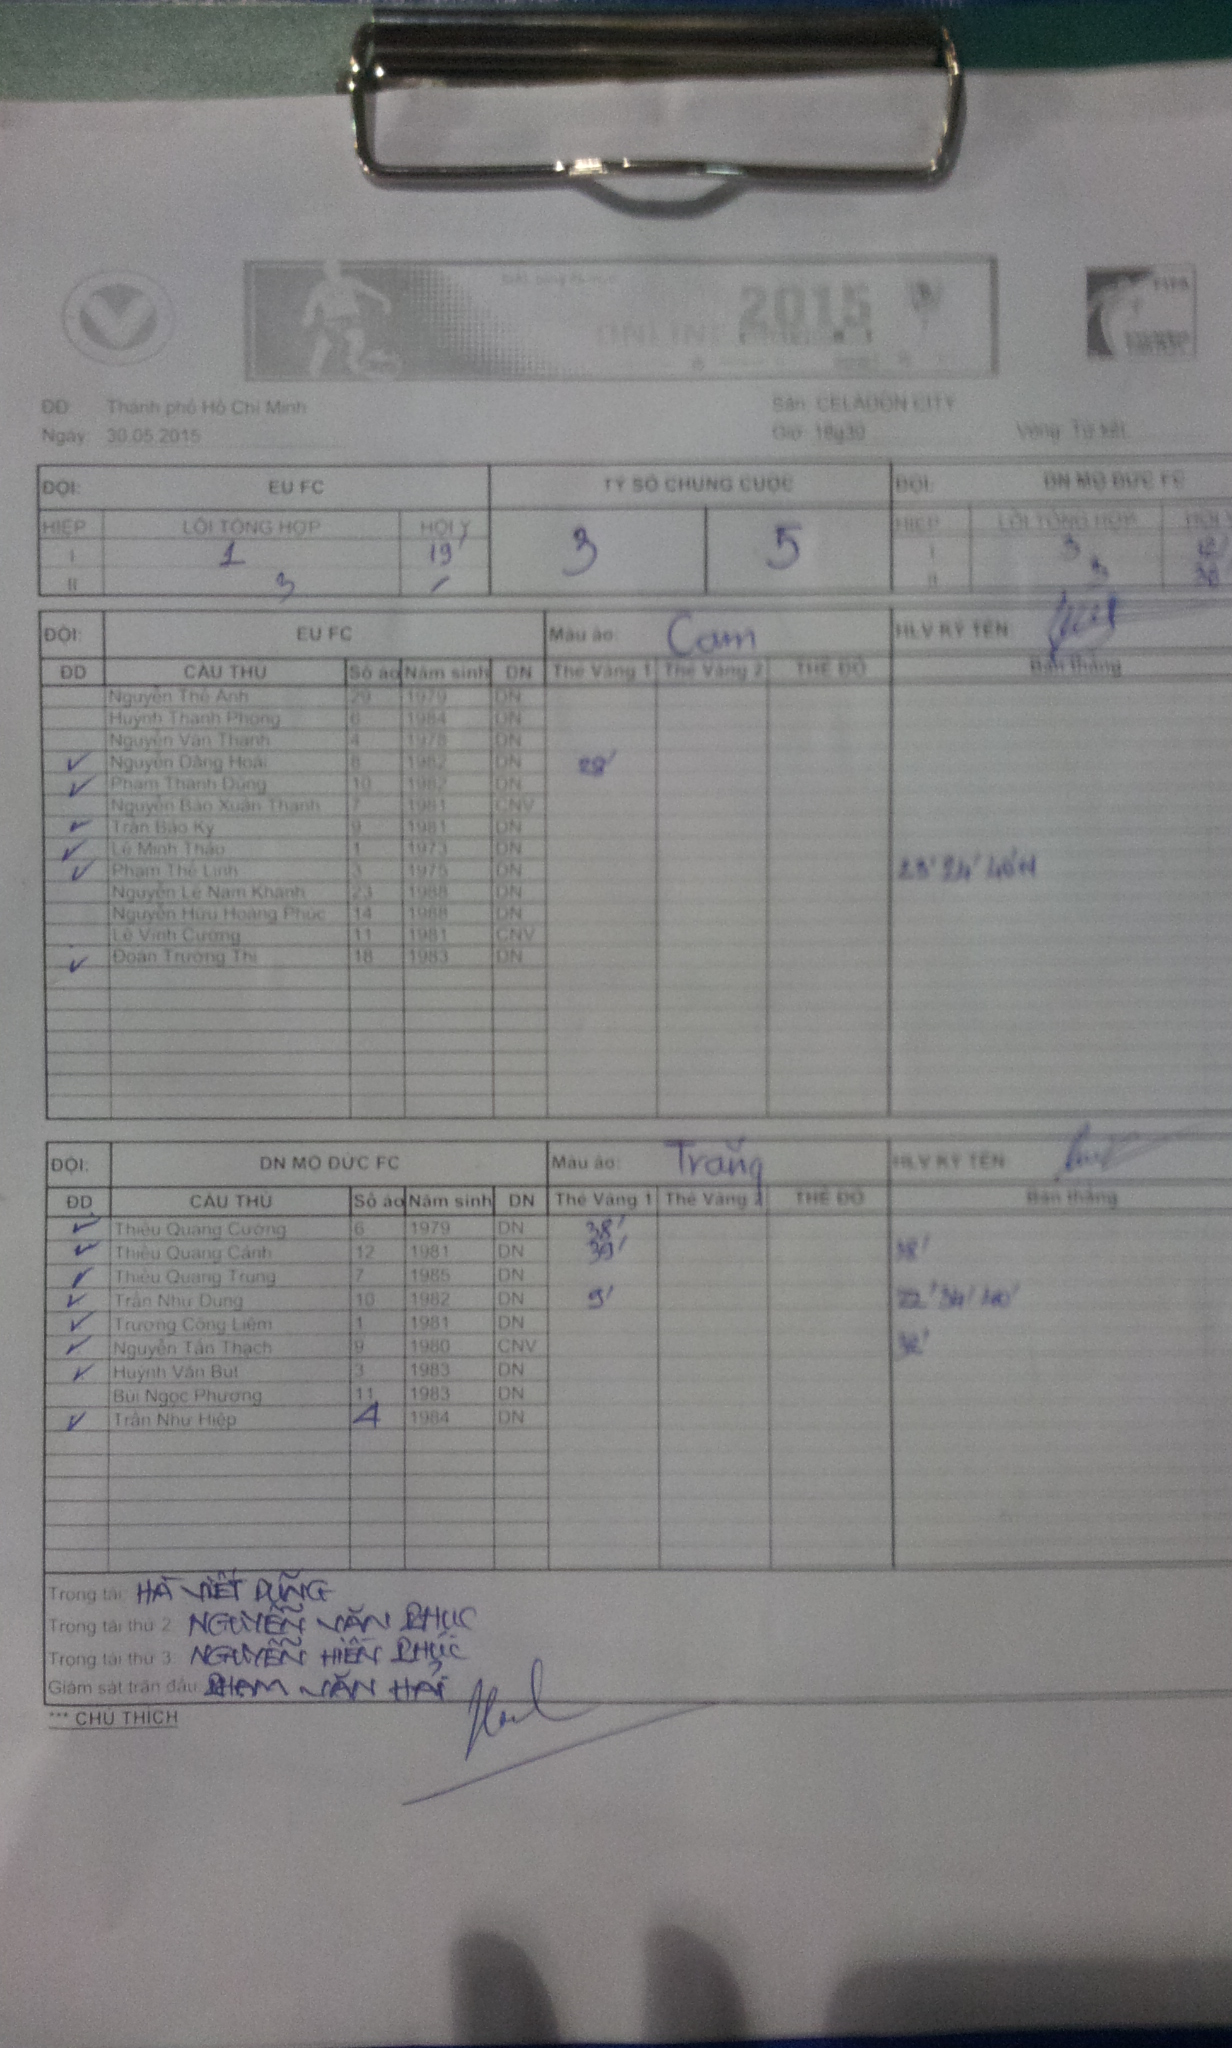 2015
ĐĐ: Thành phố Hồ Chí Minh Sân: CELADON CITY
Ngày: 30.05.2015 Giờ: 18g30 Vòng: Tứ kết
ĐỘI: EU FC TỶ SỐ CHUNG CUỘC ĐỘI: DN MỘ ĐỨC FC
HIỆP LỖI TỔNG HỢP HỘI Ý 3 5 HIỆP LỖI TỔNG HỢP HỘI Ý
I 1 19' I 3
II 3 II
ĐỘI: EU FC Màu áo: Cam HLV KÝ TÊN:
ĐD CẦU THỦ Số áo Năm sinh DN Thẻ Vàng 1 Thẻ Vàng 2 THẺ ĐỎ Bàn thắng
Nguyễn Thế Anh 29 1979 DN
Huỳnh Thanh Phong 6 1984 DN
Nguyễn Văn Thanh 4 1978 DN
✓ Nguyễn Đăng Hoài 8 1982 DN 28'
✓ Phạm Thanh Dũng 10 1982 DN
Nguyễn Bảo Xuân Thanh 7 1981 CNV
✓ Trần Bảo Kỳ 9 1981 DN
✓ Lê Minh Thảo 1 1973 DN
✓ Phạm Thế Linh 3 1975 DN 23' 24'
Nguyễn Lê Nam Khánh 23 1988 DN
Nguyễn Hữu Hoàng Phúc 14 1988 DN
Lê Vinh Cường 11 1981 CNV
✓ Đoàn Trường Thi 18 1983 DN
ĐỘI: DN MỘ ĐỨC FC Màu áo: Trắng HLV KÝ TÊN:
ĐD CẦU THỦ Số áo Năm sinh DN Thẻ Vàng 1 Thẻ Vàng 2 THẺ ĐỎ Bàn thắng
✓ Thiều Quang Cường 6 1979 DN 38'
✓ Thiều Quang Cảnh 12 1981 DN 39' 18'
✓ Thiều Quang Trung 7 1985 DN
✓ Trần Như Dung 10 1982 DN 9' 22' 34' 40'
✓ Trương Công Liêm 1 1981 DN
✓ Nguyễn Tấn Thạch 9 1980 CNV
✓ Huỳnh Văn But 3 1983 DN
Bùi Ngọc Phương 11 1983 DN
✓ Trần Như Hiệp 4 1984 DN
Trọng tài: HÀ VIẾT DŨNG
Trọng tài thứ 2: NGUYỄN VĂN PHỤC
Trọng tài thứ 3: NGUYỄN HIỀN PHÚC
Giám sát trận đấu: PHẠM VĂN HẢI
*** CHÚ THÍCH